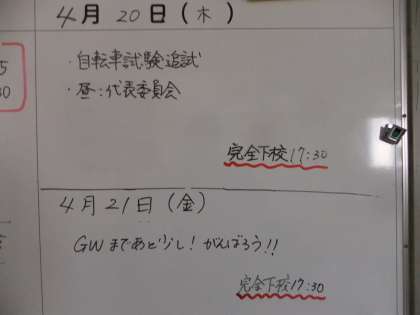 4月20日(木)
・自転車試験追試
・昼:代表委員会
完全下校17:30
4月21日(金)
GWまであと少し!がんばろう!!
完全下校17:30